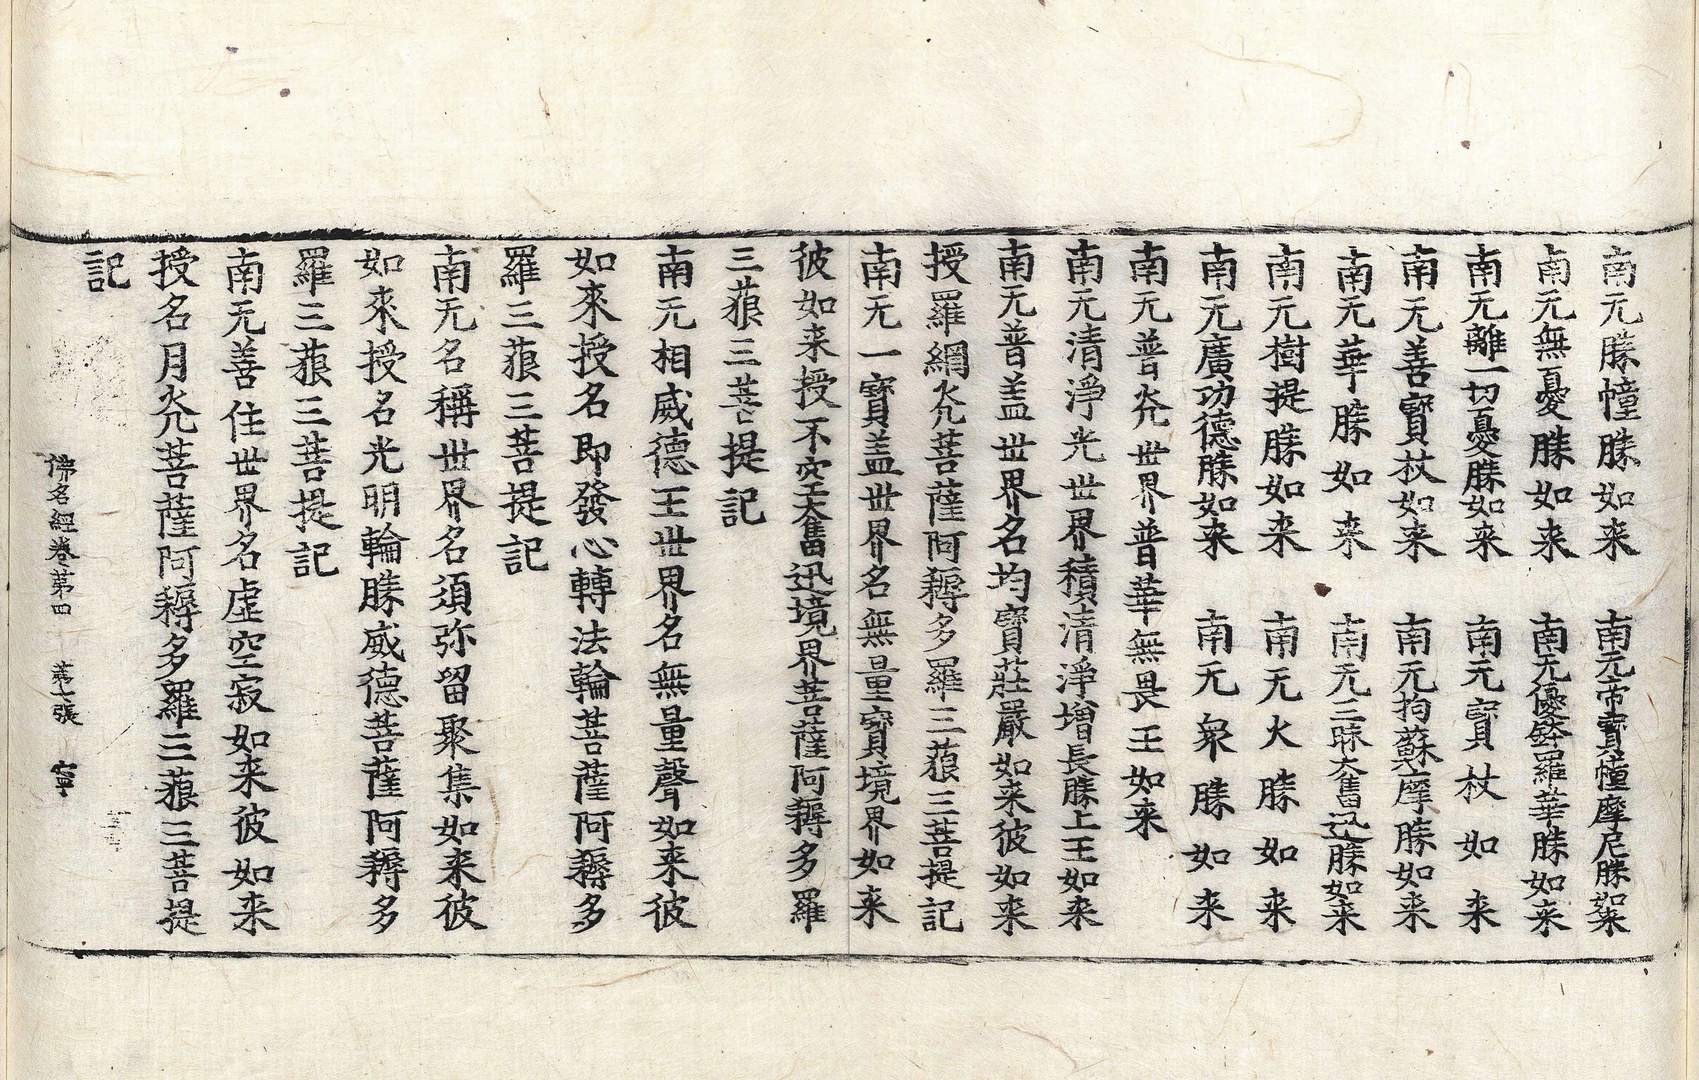 南无勝幢勝如来　南无帝寶幢摩尼勝如来
南无無憂勝如来　南无優鉢羅華勝如来
南无離一切憂勝如来　南无寶杖如来
南无善寶杖如来　南无拘蘇摩勝如来
南无華勝如来　南无三昧奮迅勝如来
南无樹提勝如来　南无火勝如来
南无廣功德勝如来　南无衆勝如来
南无普光世界普華無畏王如来
南无清淨光世界積清淨增長勝上王如来
南无普盖世界名均寶莊嚴如来彼如来
授羅網光菩薩阿耨多羅三藐三菩提記
南无一寶盖世界名無量寶境界如来
彼如来授不空奮迅境界菩薩阿耨多羅
三藐三菩提記
南无相威德王世界名無量聲如来彼
如來授名即發心轉法輪菩薩阿耨多
羅三藐三菩提記
南无名稱世界名須弥留聚集如来彼
如來授名光明輪勝威德菩薩阿耨多
羅三藐三菩提記
南无善住世界名虛空寂如来彼如来
授名月光菩薩阿耨多羅三藐三菩提
記
佛名經卷第四　第七張　寧